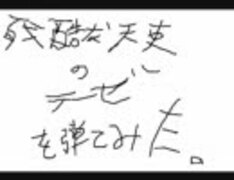 残酷な天使
の
テーゼ
を弾てみた。